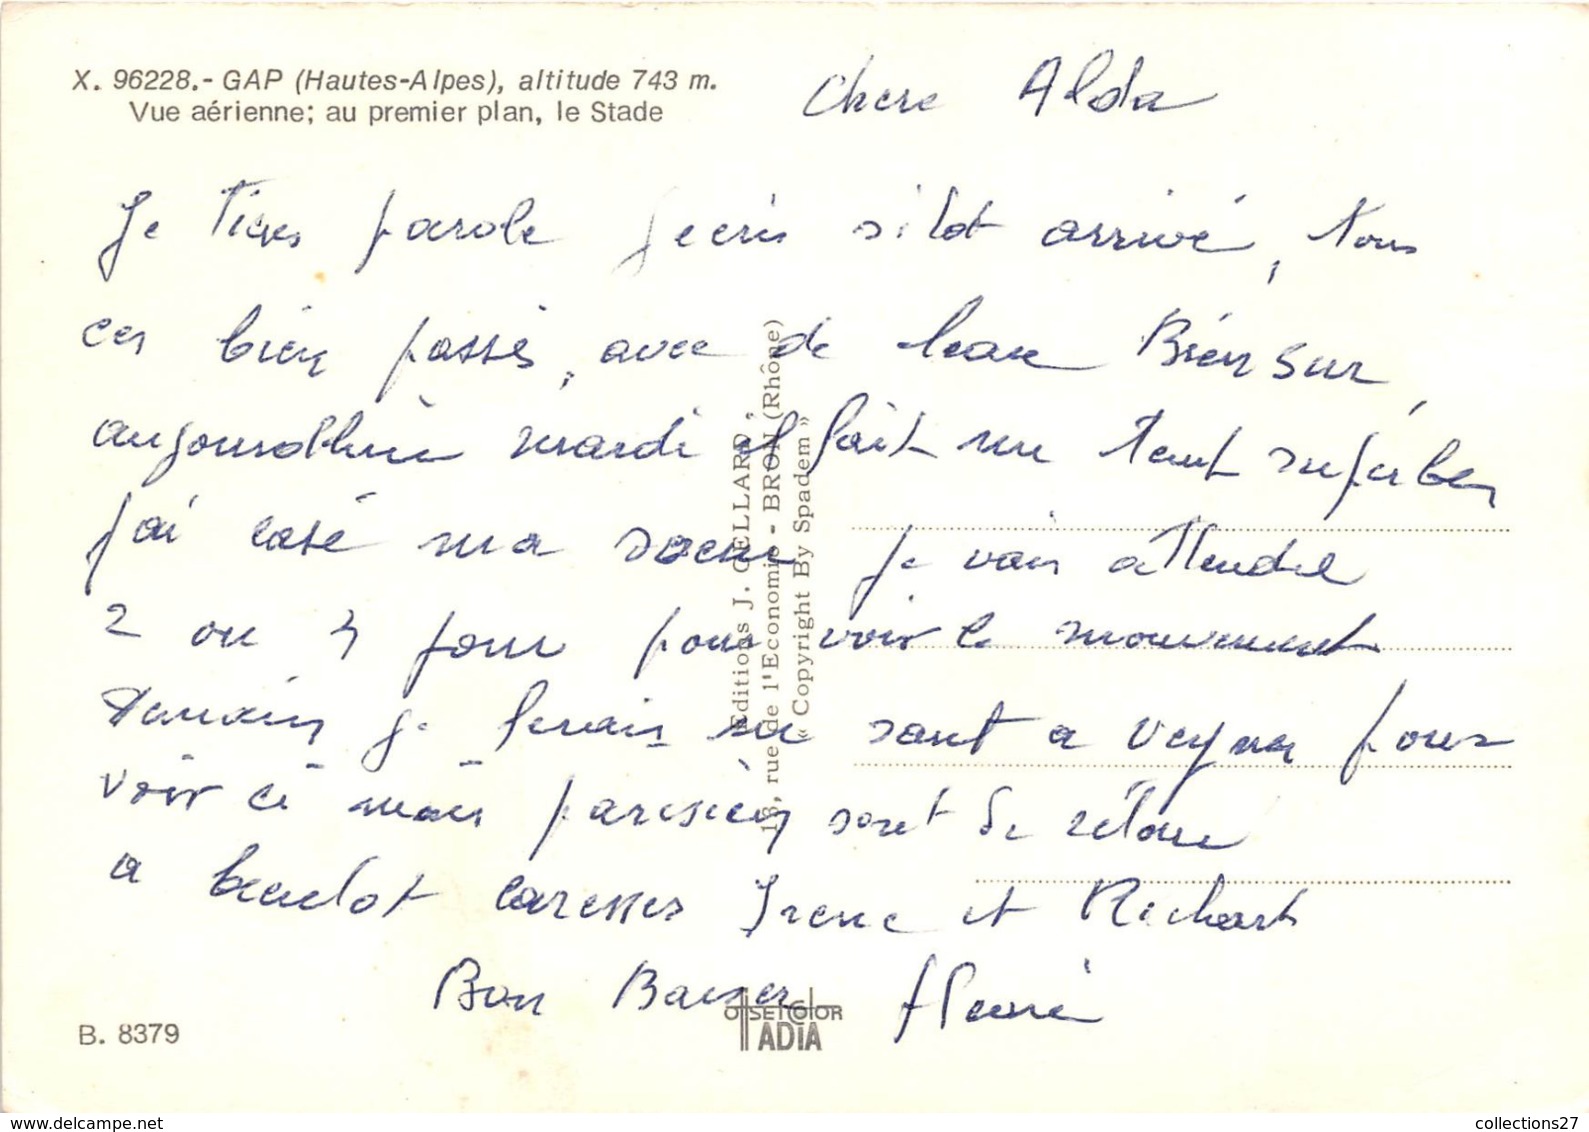 X. 96228.- GAP (Hautes-Alpes), altitude 743 m.
Vue aérienne; au premier plan, le Stade
Chere Alda
Je tiens parole j ecris sitot arrivé, tous
ces bien passés, avec de leau Bien Sur,
aujourdhui mardi il fait un temt superbe,
j'ai casé ma soeur je vais attendre
2 ou 3 jour pour voir le mouvement
demain je ferais un saut a Veynes pour
voir ci mais parisien sont de retour
a bentot caresses Irene et Richart
Bon Baiser
Editions J. GELLARD,
13, rue de l'Economie - BRON (Rhône)
« Copyright By Spadem »
B. 8379
OffSET COlOR
ADIA
collections27